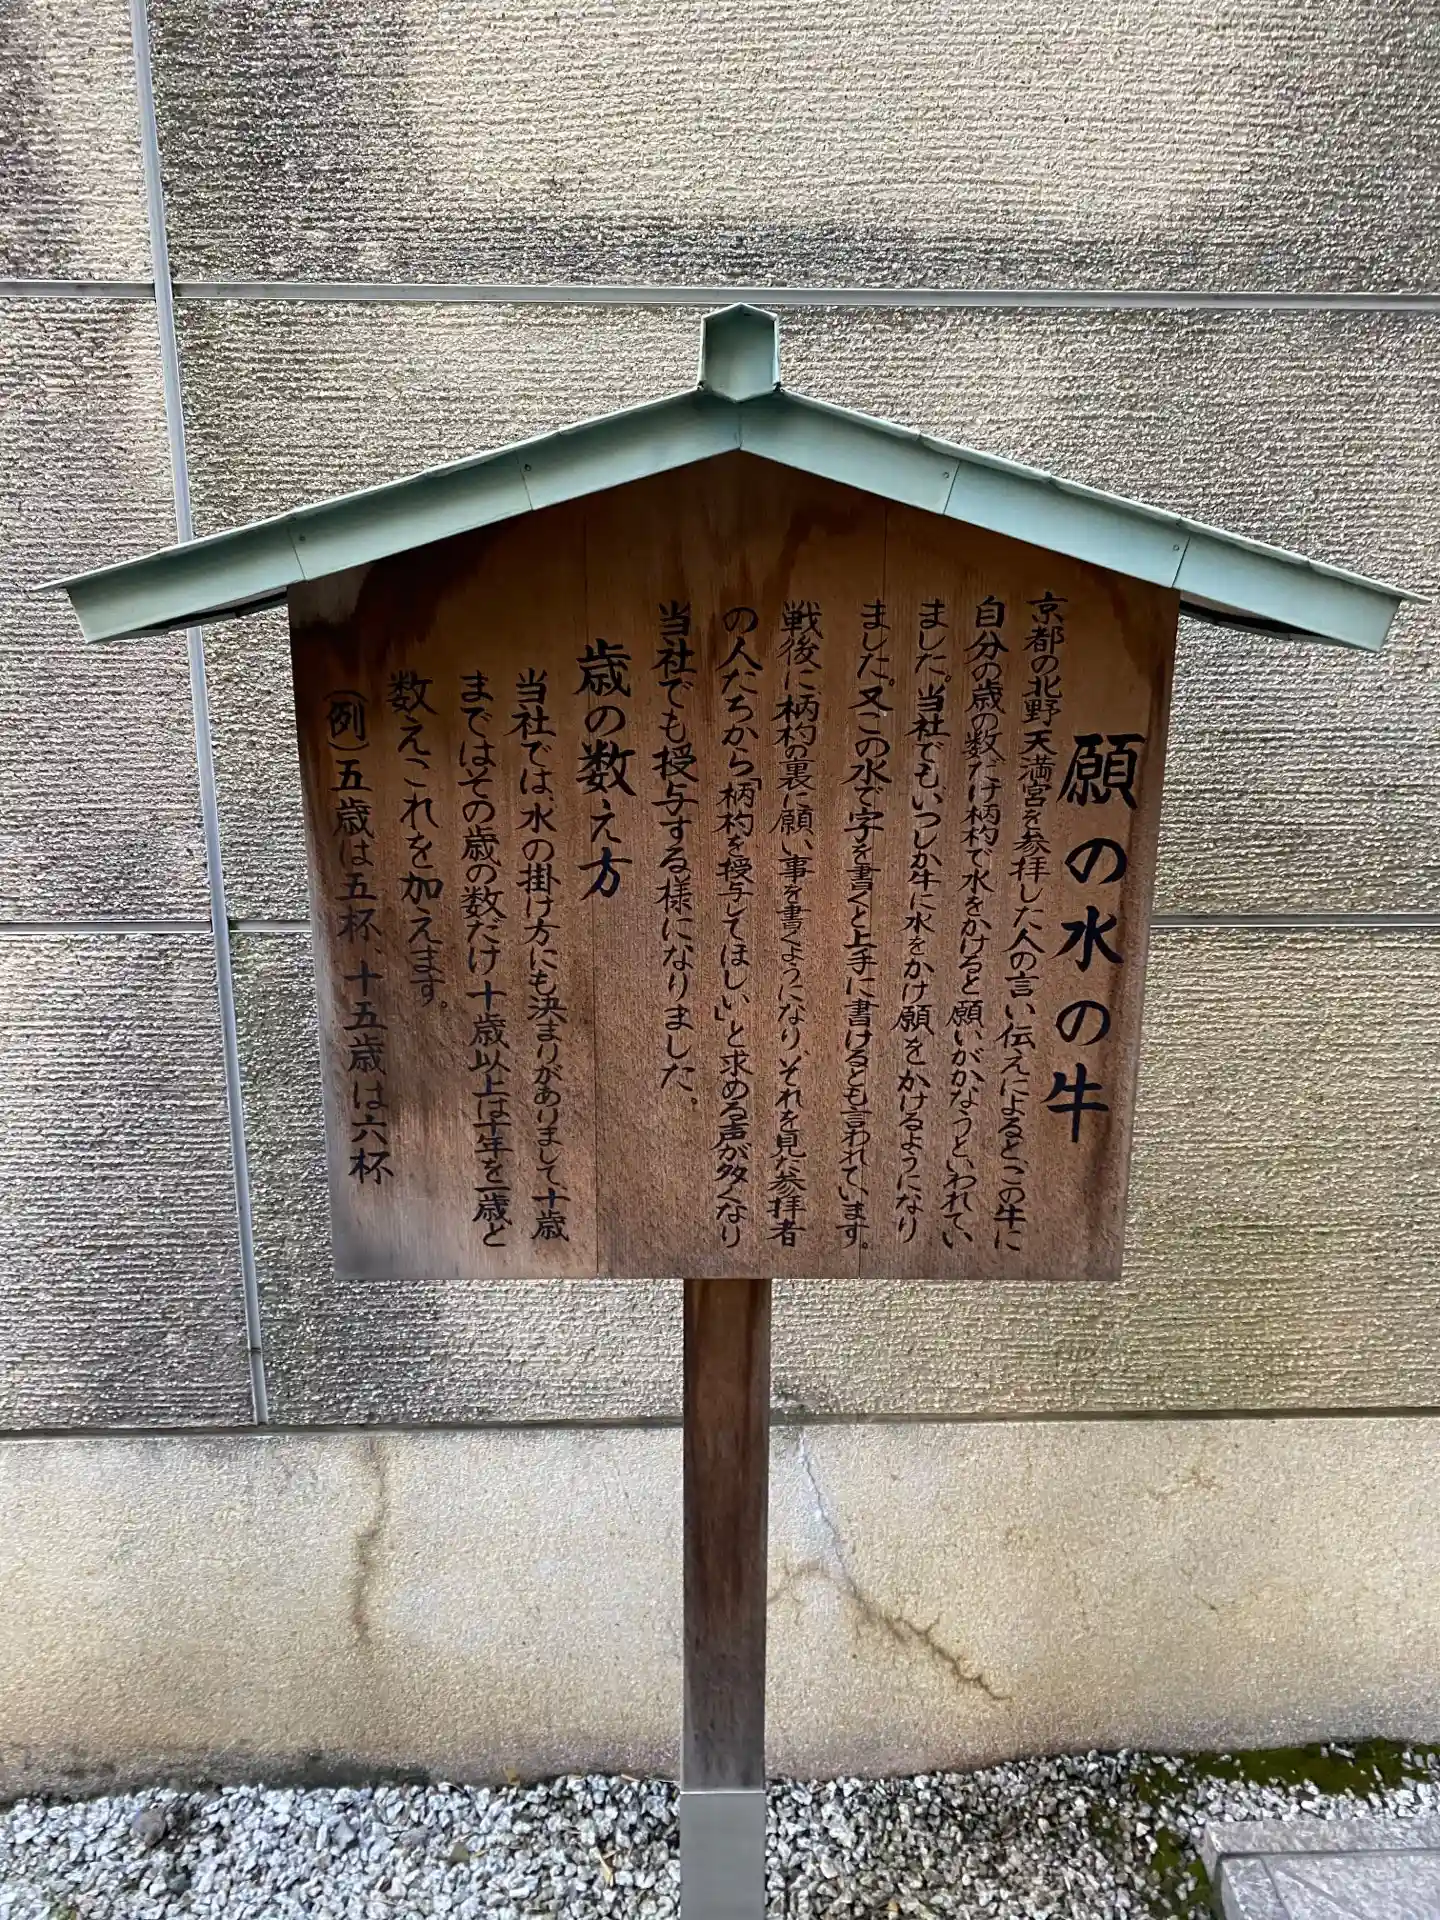 願の水の牛
京都の北野天満宮を参拝した人の言い伝えによるとこの牛に
自分の歳の数だけ柄杓で水をかけると願いがかなうといわれてい
ました。当社でもいつしか牛に水をかけ願をかけるようになり
ました。又この水で字を書くと上手に書けるとも言われています。
戦後に柄杓の裏に願い事を書くようになり、それを見た参拝者
の人たちから「柄杓を授与してほしい」と求める声が多くなり
当社でも授与する様になりました。
歳の数え方
当社では、水の掛け方にも決まりがありまして、十歳
まではその歳の数だけ十歳以上は十年を一歳と
数えこれを加えます。
(例)五歳は五杯、十五歳は六杯